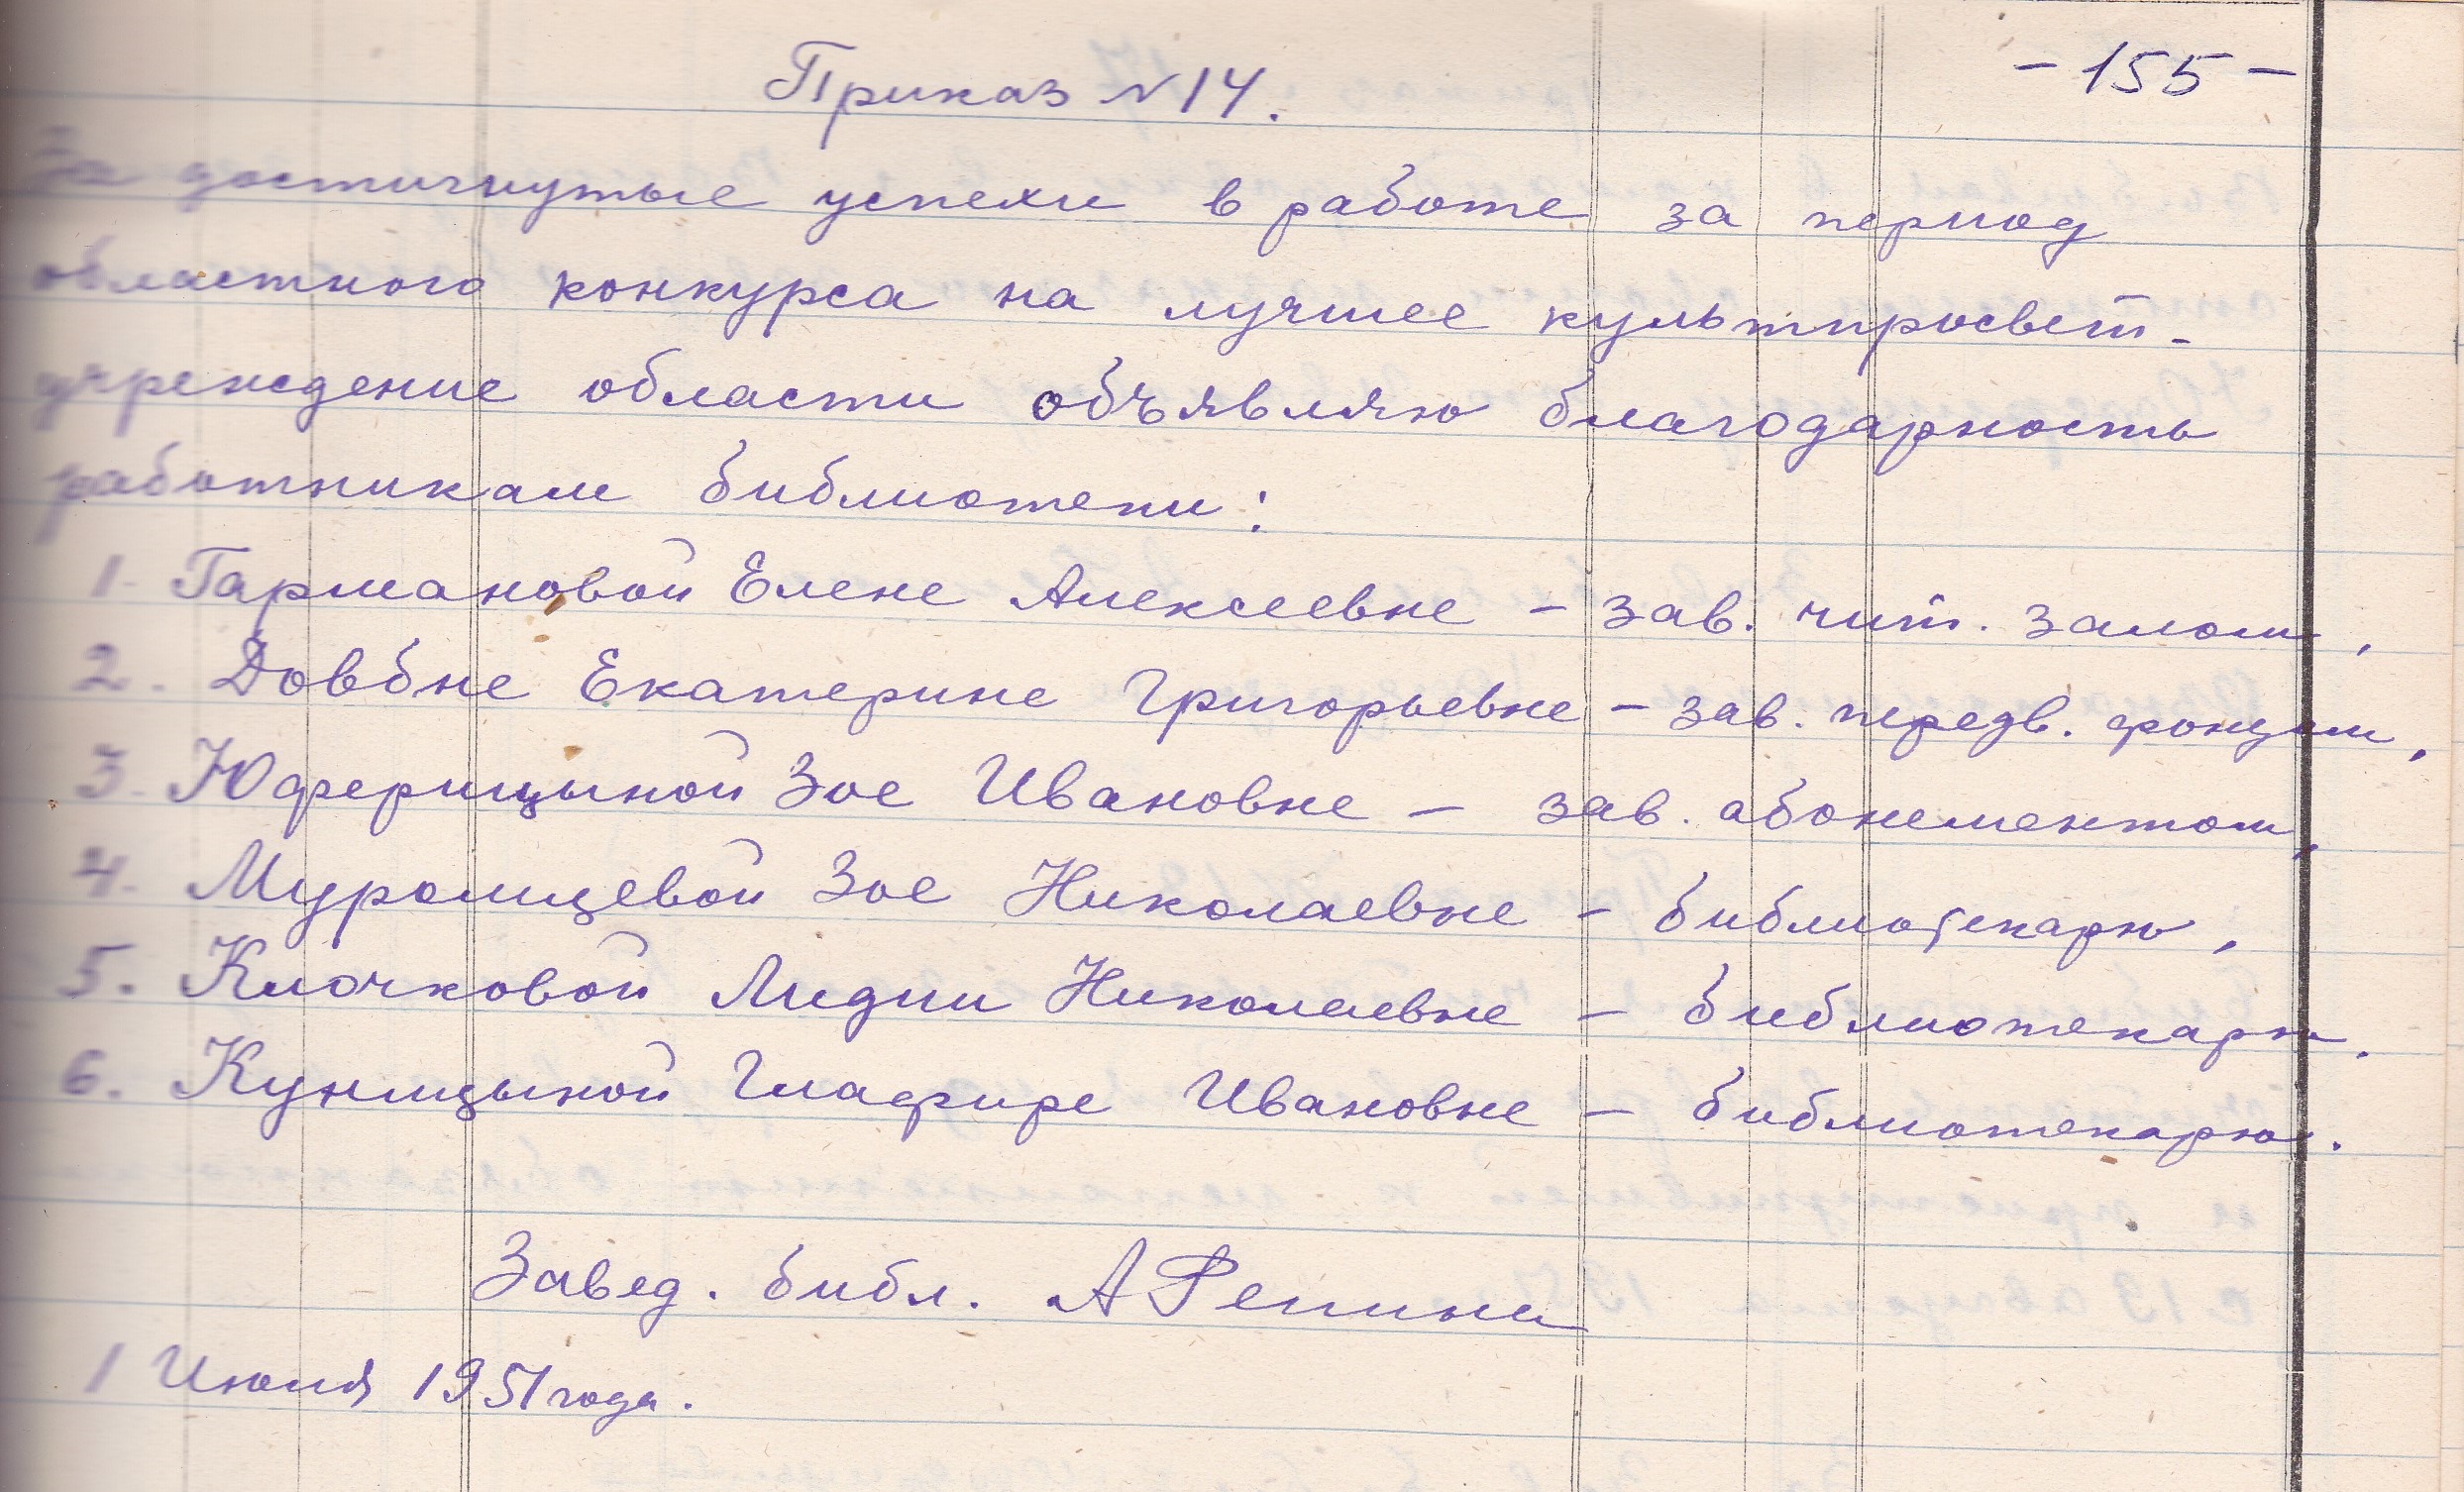 - 155 -
Приказ N 14.
За достигнутые успехи в работе за период
областного конкурса на лучшее культпросвет-
учреждение области объявляю благодарность
работникам библиотеки:
1. Гармановой Елене Алексеевне - зав. чит. залом,
2. Довбне Екатерине Григорьевне - зав. передв. фондом,
3. Юферицыной Зое Ивановне - зав. абонементом,
4. Муромцевой Зое Николаевне - библиотекарю,
5. Клочковой Лидии Николаевне - библиотекарю.
6. Куницыной Глафире Ивановне - библиотекарю.
Завед. библ. А Репина
1 Июля 1951 года.